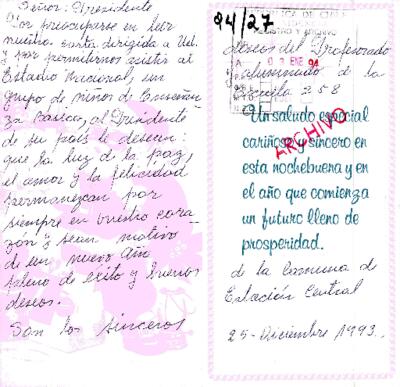 Señor: Presidente
Por preocuparse en leer
nuestra carta dirigida a Ud.
y por permitirnos asistir al
Estadio Nacional, un
grupo de niños de Enseñan
za Básica, al Presidente
de su país le desean:
que la luz de la paz,
el amor y la felicidad
permanezcan por
siempre en vuestro cora-
zón y sean motivo
de un nuevo año
pleno de éxito y buenos
deseos.
Son los sinceros
94/27
deseos del Profesorado
alumnado de la
Escuela 258
A 03 ENE 94
ARCHIVO
Un saludo especial
cariñoso y sincero en
esta nochebuena y en
el año que comienza
un futuro lleno de
prosperidad.
de la Comuna de
Estación Central
25-Diciembre 1993.